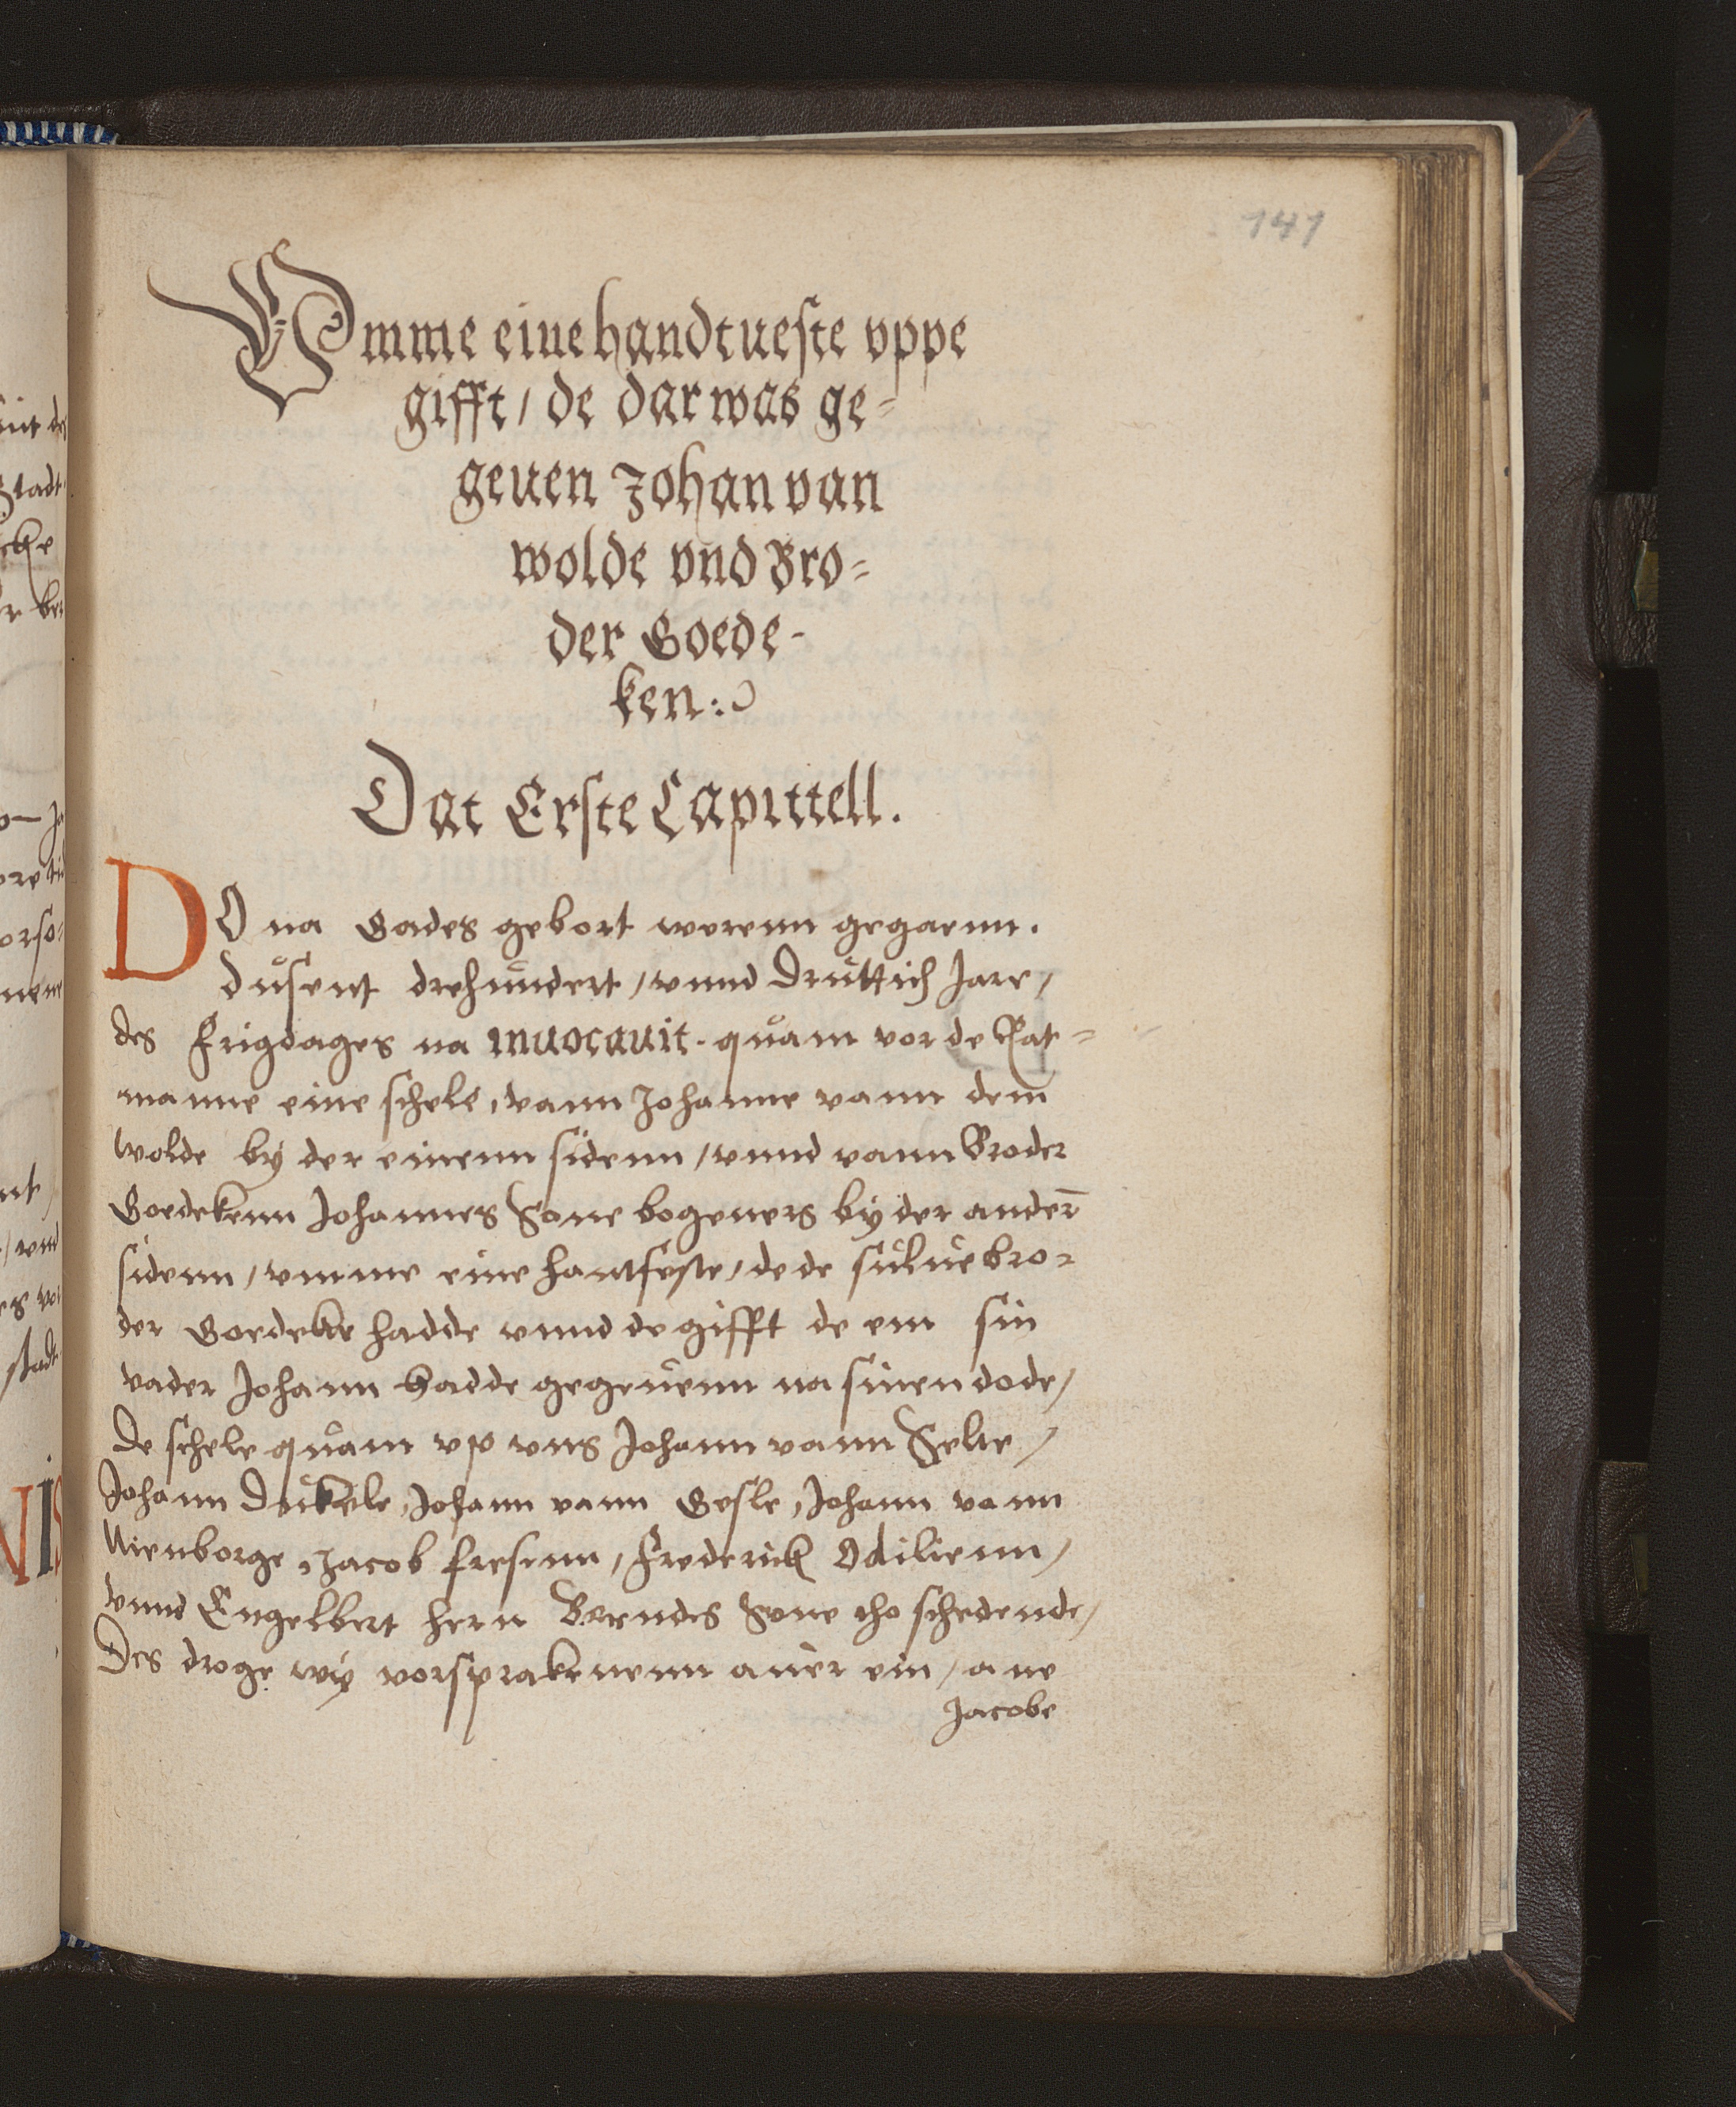 141
Vmme eine handtueste vppe
gifft / de dar was ge=
geuen Johan van
wolde vnd Bro=
der Goede-
ken:
Dat Erste Capittell.
DO na Gades gebort werenn gegaenn.
dusent drehundert / vnnd Druttich Jare /
des Frigdages na Inuocauit. quam vor de Rat=
manne eine schele, vann Johanne vann dem
wolde by der einenn sidenn / vnnd vann Broder
Goedekenn Johannes Sone bogeners by derander̄
sidenn / vmme eine hantfeste / de de sulue bro=
der Goedeke hadde vnnd de gifft de em sin
vader Johann hadde gegeuenn na sinen dode /
De schele quam vp vns Johann vann Selve /
Johann Duckele, Johann vann Gesle, Johann vann
Nienborge, Jacob fresenn / Frederick Odilienn /
vnnd Engelbert hern Berendes Sone tho schedende /
Des droge wy vorsprakenenn auer ein / ane
Jacobe